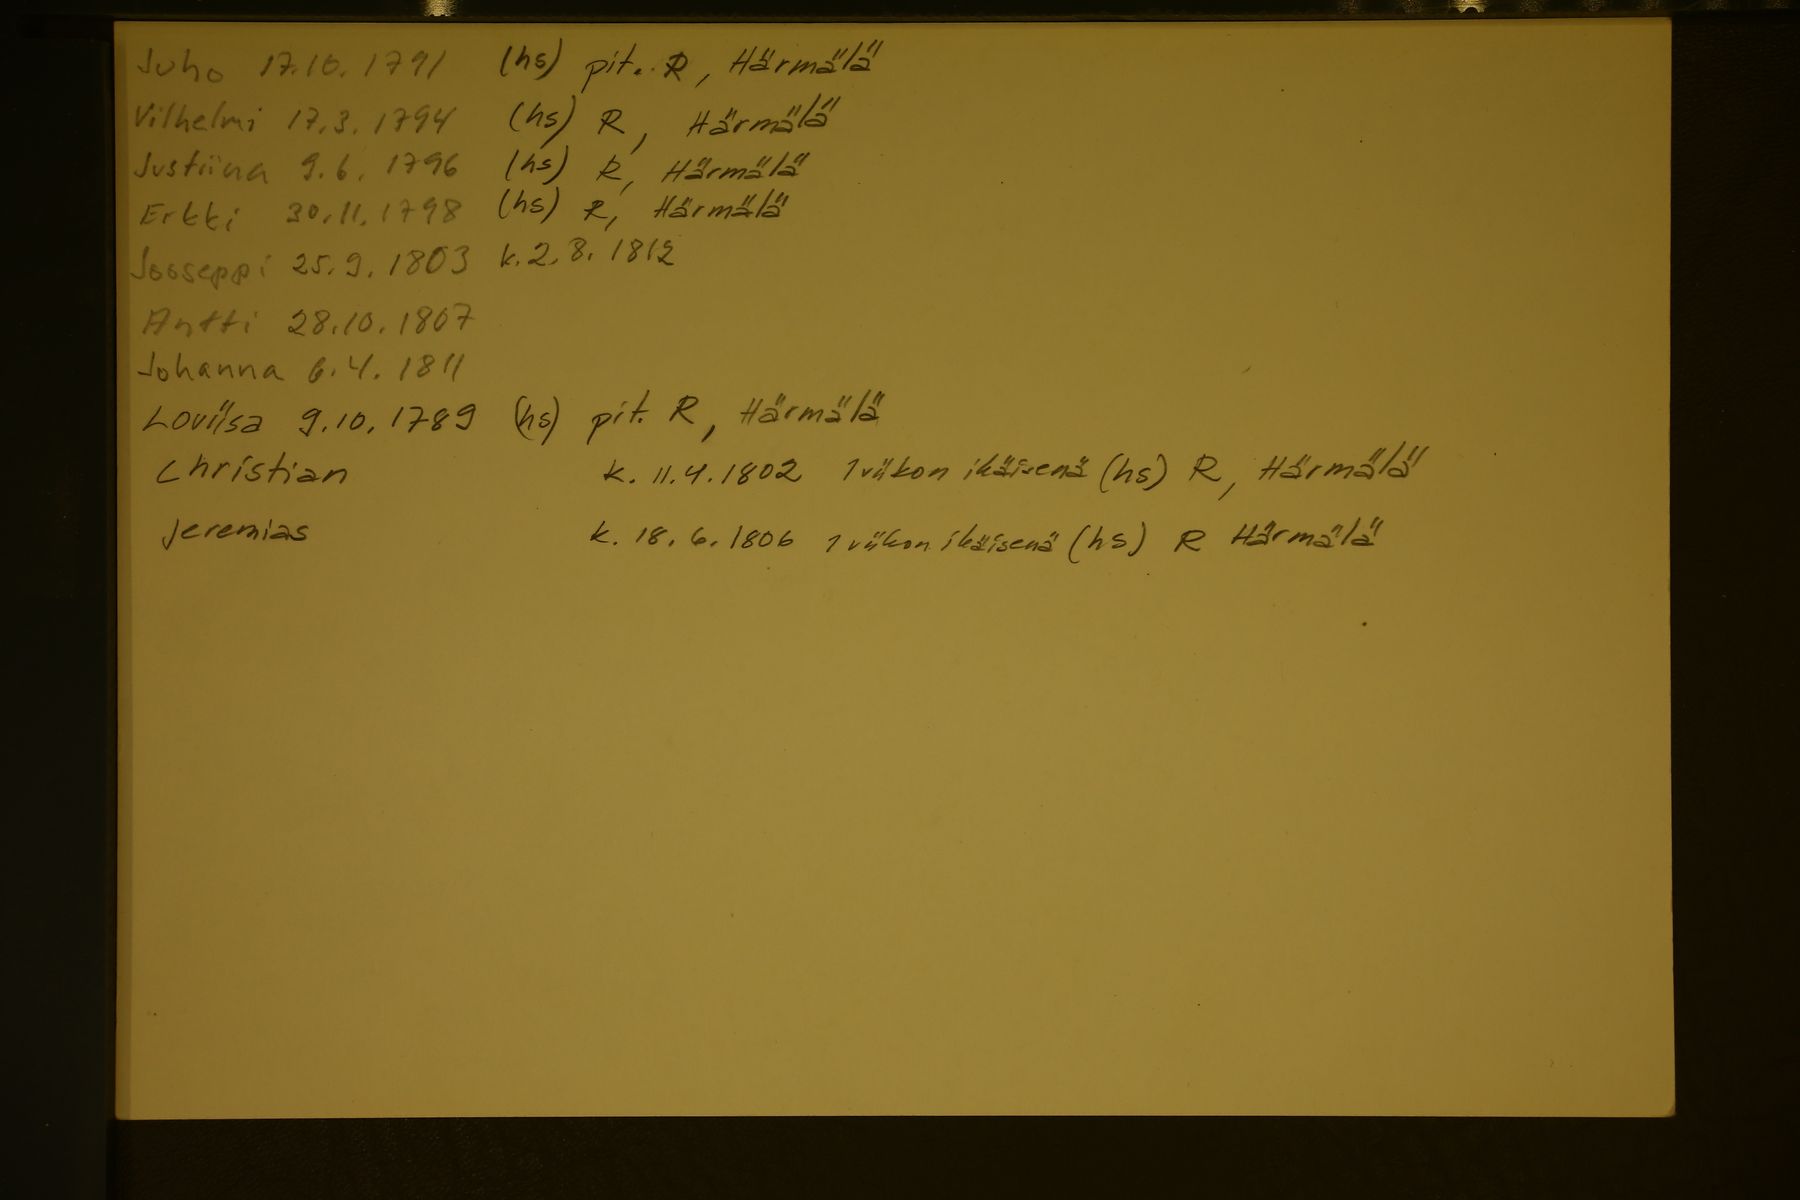 Juho 17.10.1791 (hs) pit. R, Härmälä
Vilhelmi 17.3.1794 (hs) R, Härmälä
Justiina 9.6.1796 (hs) R, Härmälä
Erkki 30.11.1798 (hs) R, Härmälä
Jooseppi 25.9.1803 k. 2.8.1812
Antti 28.10.1807
Johanna 6.4.1811
Loviisa 9.10.1789 (hs) pit. R, Härmälä
Christian k. 11.4.1802 1 viikon ikäisenä (hs) R, Härmälä
Jeremias k. 18.6.1806 1 viikon ikäisenä (hs) R Härmälä